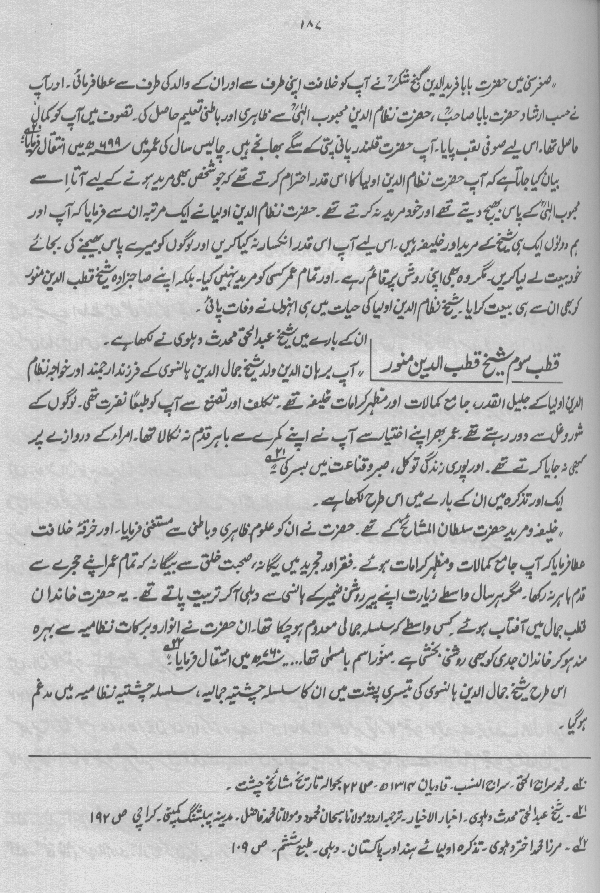 ۱۸۷
"صغر سنی میں حضرت بابا فرید الدین گنج شکرؒ نے آپ کو خلافت اپنی طرف سے اور ان کے والد کی طرف سے عطا فرمائی۔ اور آپ
نے حسب ارشاد حضرت بابا صاحبؒ، حضرت نظام الدین محبوب الٰہیؒ سے ظاہری اور باطنی تعلیم حاصل کی۔ تصوف میں آپ کو کمال
حاصل تھا۔ اس لیے صوفی لقب پایا۔ آپ حضرت قلندر پانی پتی کے سگے بھانجے ہیں۔ چالیس سال کی عمر میں ۶۹۹ھ میں انتقال فرمایا۔
بیان کیا جاتا ہے کہ آپ حضرت نظام الدین اولیا کا اس قدر احترام کرتے تھے کہ جو شخص بھی مرید ہونے کے لیے آتا اسے
محبوب الٰہیؒ کے پاس بھیج دیتے تھے اور خود مرید نہ کرتے تھے۔ حضرت نظام الدین اولیا نے ایک مرتبہ ان سے فرمایا کہ آپ اور
ہم دونوں ایک ہی شیخ کے مرید اور خلیفہ ہیں۔ اس لیے آپ اس قدر انکسار نہ کیا کریں اور لوگوں کو میرے پاس بھیجنے کی بجائے
خود بیعت لے لیا کریں۔ مگر وہ بھی اپنی روش پر قائم رہے۔ اور تمام عمر کسی کو مرید نہیں کیا۔ بلکہ اپنے صاحبزادہ شیخ قطب الدین منور
کو بھی ان سے ہی بیعت کرایا۔ شیخ نظام الدین اولیا کی حیات میں ہی انہوں نے وفات پائی۔
قطب سوم شیخ قطب الدین منور
ان کے بارے میں شیخ عبد الحق محدث دہلوی نے لکھا ہے۔
"آپ برہان الدین ولد شیخ جمال الدین ہانسوی کے فرزند ارجمند اور خواجہ نظام
الدین اولیا کے جلیل القدر، جامع کمالات اور مظہر کرامات خلیفہ تھے۔ تکلف اور تصنع سے آپ کو طبعاً نفرت تھی۔ لوگوں کے
شور و غل سے دور رہتے تھے۔ عمر بھر اپنے اختیار سے آپ نے اپنے کمرے سے باہر قدم نہ نکالا تھا۔ امراء کے دروازے پر
کبھی نہ جایا کرتے تھے۔ اور پوری زندگی توکل، صبر و قناعت میں بسر کی۲۱؎
ایک اور تذکرہ میں ان کے بارے میں اس طرح لکھا ہے۔
"خلیفہ و مرید حضرت سلطان المشائخؒ کے تھے۔ حضرت نے ان کو علوم ظاہری و باطنی سے مستغنی فرمایا۔ اور خرقۂ خلافت
عطا فرمایا کہ آپ جامع کمالات و مظہر کرامات ہوئے۔ فقر اور تجرید میں یگانہ، صحبت خلق سے بیگانہ کہ تمام عمر اپنے حجرے سے
قدم باہر نہ رکھا۔ مگر ہر سال واسطے زیارت اپنے پیر روشن ضمیر کے ہانسی سے دہلی آکر تربیت پاتے تھے۔ یہ حضرت خاندان
قطب جمال میں آفتاب ہوئے کس واسطے کہ سلسلہ جمالی معدوم ہو چکا تھا۔ ان حضرت نے انوار و برکات نظامیہ سے بہرہ
مند ہو کر خاندان جدی کو بھی روشنی بخشی ہے۔ منور اسم بامسمیٰ تھا.... ۷۶۰ھ میں انتقال فرمایا۲۲؎
اس طرح شیخ جمال الدین ہانسوی کی تیسری پشت میں ان کا سلسلہ چشتیہ جمالیہ، سلسلہ چشتیہ نظامیہ میں مدغم
ہو گیا۔
۲۰؎۔ محمد سراج الحق۔ سراج النسب۔ قادیان ۱۳۱۴ھ۔ ص ۲۲ بحوالہ تاریخ مشائخ چشت۔
۲۱؎۔ شیخ عبد الحق محدث دہلوی۔ اخبار الاخیار۔ ترجمہ اردو مولانا سبحان محمود و مولانا محمد فاضل۔ مدینہ پبلشنگ کمپنی۔ کراچی ص ۱۹۲
۲۲؎۔ مرزا محمد اختر دہلوی۔ تذکرہ اولیائے ہند اور پاکستان۔ دہلی۔ طبع ششم۔ ص ۱۰۹